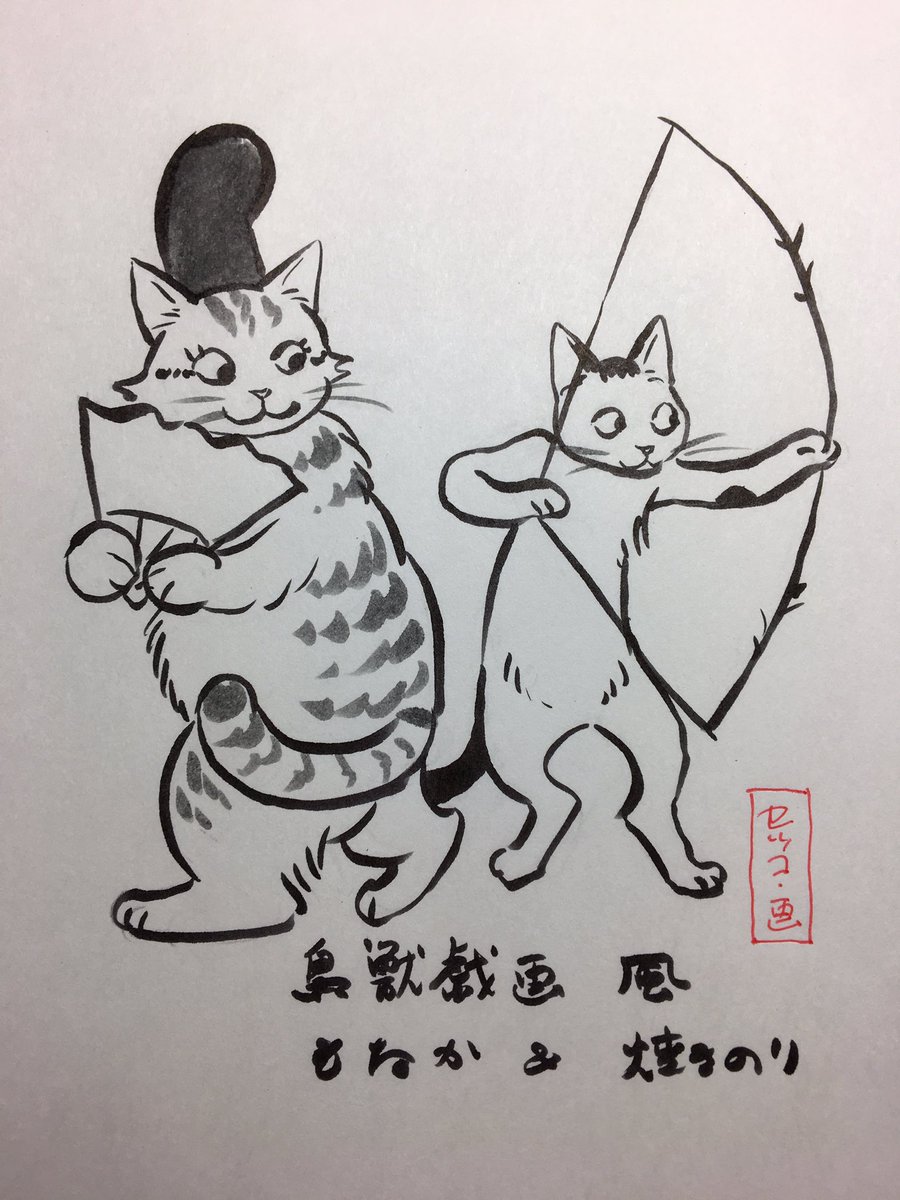 セツコ・画
鳥獣戯画 風
もなか & 焼きのり